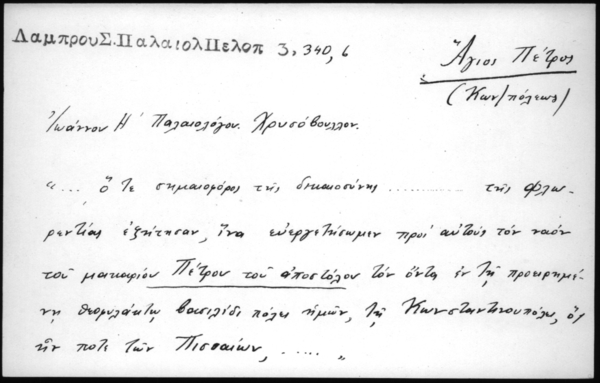 ΛαμπρουΣ.ΠαλαιολΠελοπ 3, 340, 6
Ἅγιος Πέτρος
(Κων/πόλεως)
Ἰωάννου Η΄ Παλαιολόγου. Χρυσόβουλλον.
"... ὅ τε σημαιοφόρος τῆς δικαιοσύνης .......... τῆς Φλω-
ρεντίας ἐξήτησαν, ἵνα εὐεργετήσωμεν πρὸς αὐτοὺς τὸν ναὸν
τοῦ μακαρίου Πέτρου τοῦ ἀποστόλου τὸν ὄντα ἐν τῇ προειρημέ-
νῃ θεοφυλάκτῳ βασιλίδι πόλει ἡμῶν, τῇ Κωνσταντινουπόλει, ὅς
ἦν ποτε τῶν Πισσαίων, ..... "